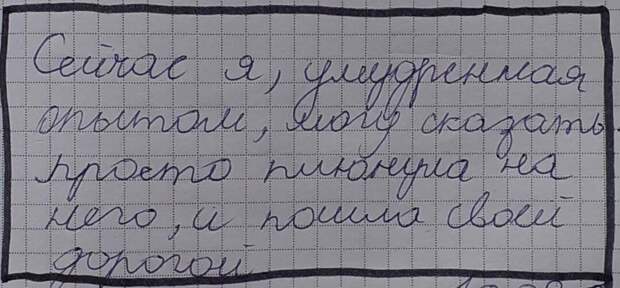 Сейчас я, умудренная
опытом, могу сказать
просто плюнула на
него, и пошла своей
дорогой